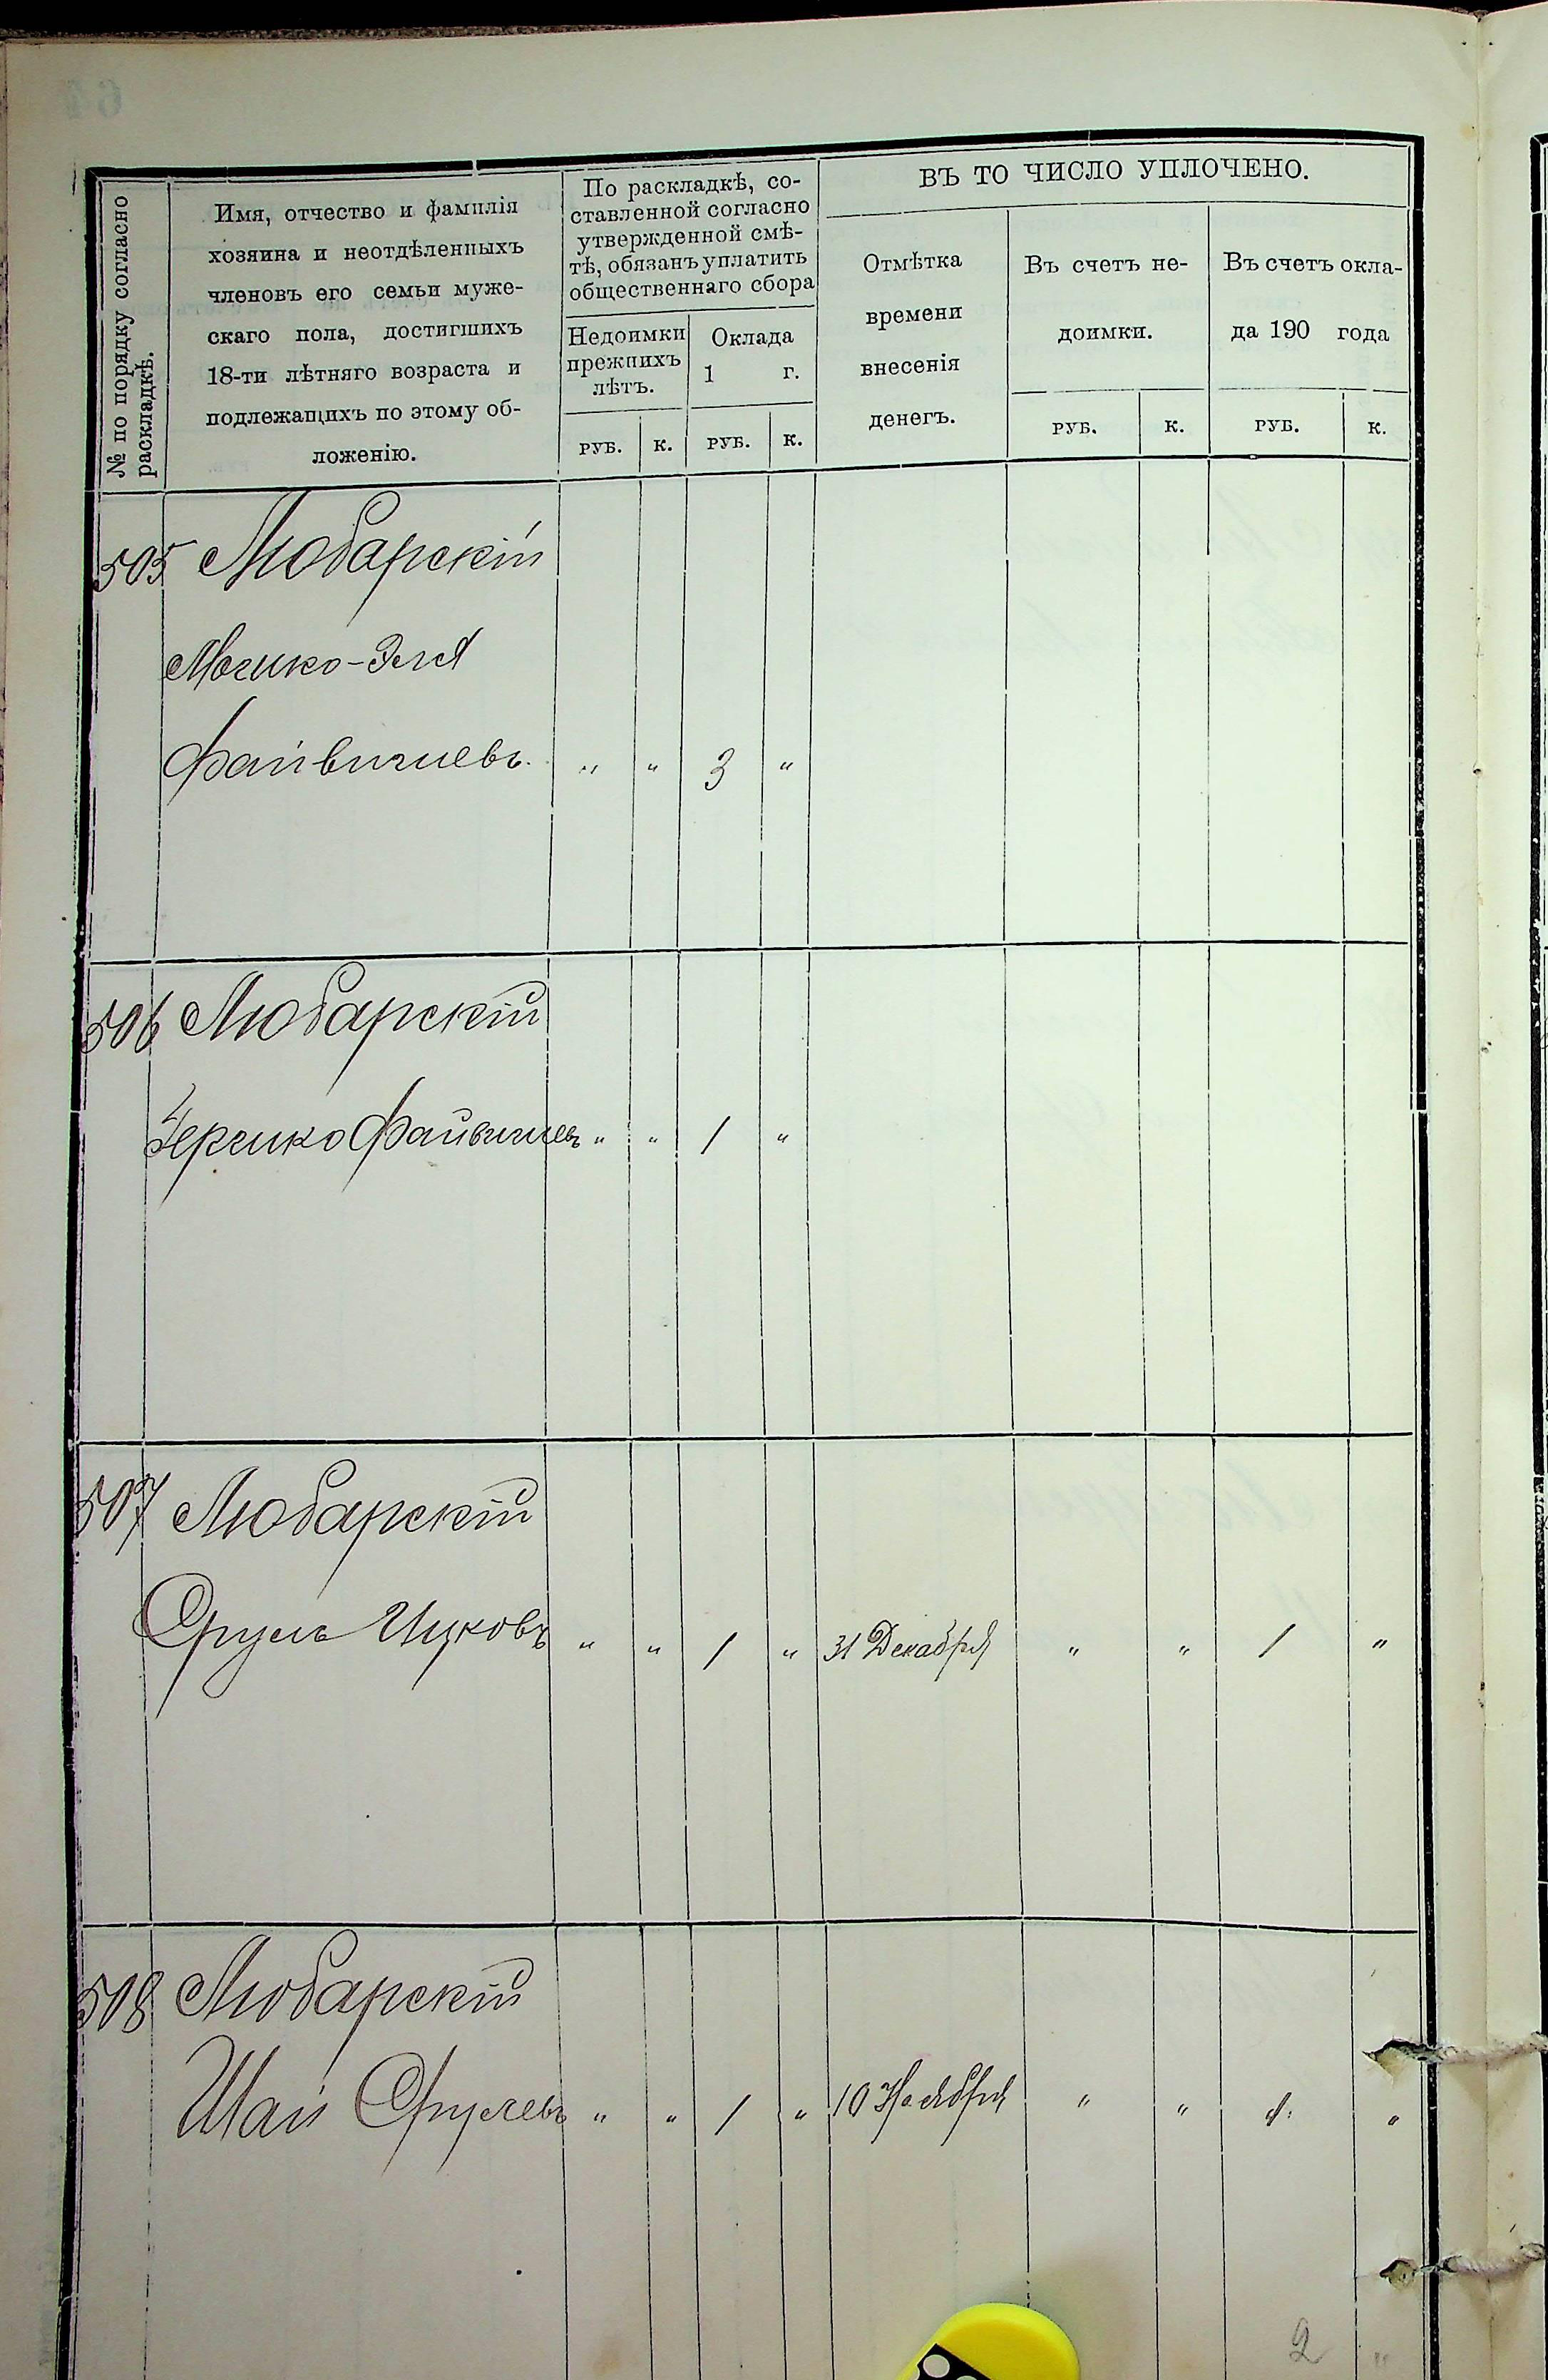 № по порядку согласно
раскладкѣ.
Имя, отчество и фамилія
хозяина и неотдѣленныхъ
членовъ его семьи муже-
скаго пола, достигшихъ
18-ти лѣтняго возраста и
подлежащихъ по этому об-
ложенію.
По раскладкѣ, со-
ставленной согласно
утвержденной смѣ-
тѣ, обязанъ уплатить
общественнаго сбора
Недоимки
прежнихъ
лѣтъ.
РУБ. К.
Оклада
1 г.
РУБ. К.
ВЪ ТО ЧИСЛО УПЛОЧЕНО.
Отмѣтка
времени
внесенія
денегъ.
Въ счетъ не-
доимки.
РУБ. К.
Въ счетъ окла-
да 190 года
РУБ. К.
505 Любарскій
Мошко-Эля
Файвишевъ. " " 3 "
506 Любарскій
Гершко Файвишевъ " " 1 "
507 Любарскій
Сруль Ицковъ " " 1 " 31 Декабря " " 1 "
508 Любарскій
Шая Срулевъ " " 1 " 10 Ноября " " 1. "
2 "